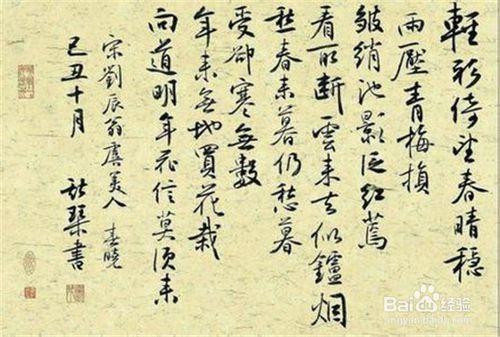 輕衫倚望春晴穩
雨壓青梅損
皺綃池影泛紅蔫
看取断雲来去似鑪烟
愁春未暮仍愁暮
受卻寒無數
年来無地買花栽
向道明年花信莫須来
宋劉辰翁虞美人 春曉
己丑十月 琴書
Baidu 经验
jingyan.baidu.com